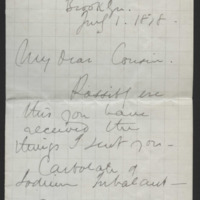 Brooklyn.
July 1. 1878.
My dear Cousin.
Possibly ere
this you have
received the
things I sent you –
Carbolate of
Sodium Inhalant –